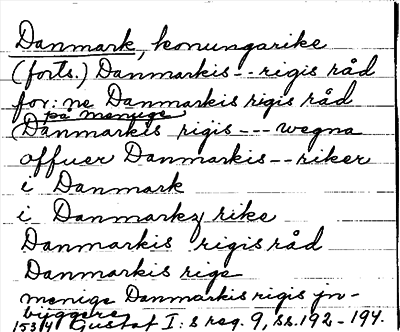 Danmark, konungarike
(forts.) Danmarkis -- rigis råd
for: ne Danmarkis rigis råd
på menige
Danmarkis rigis --- wegna
offuer Danmarkis -- riker
i Danmark
i Danmarkz rike
Danmarkis rigis råd
Danmarkis rige
menige Danmarkis rigis jn-
byggere
1534 Gustaf I:s reg. 9, ss. 192-194.